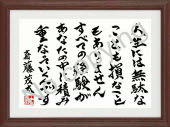 人生には無駄な
ことも損なこと
もありません
すべての経験が
あなたの積み
重なっていくんです
斎藤茂太